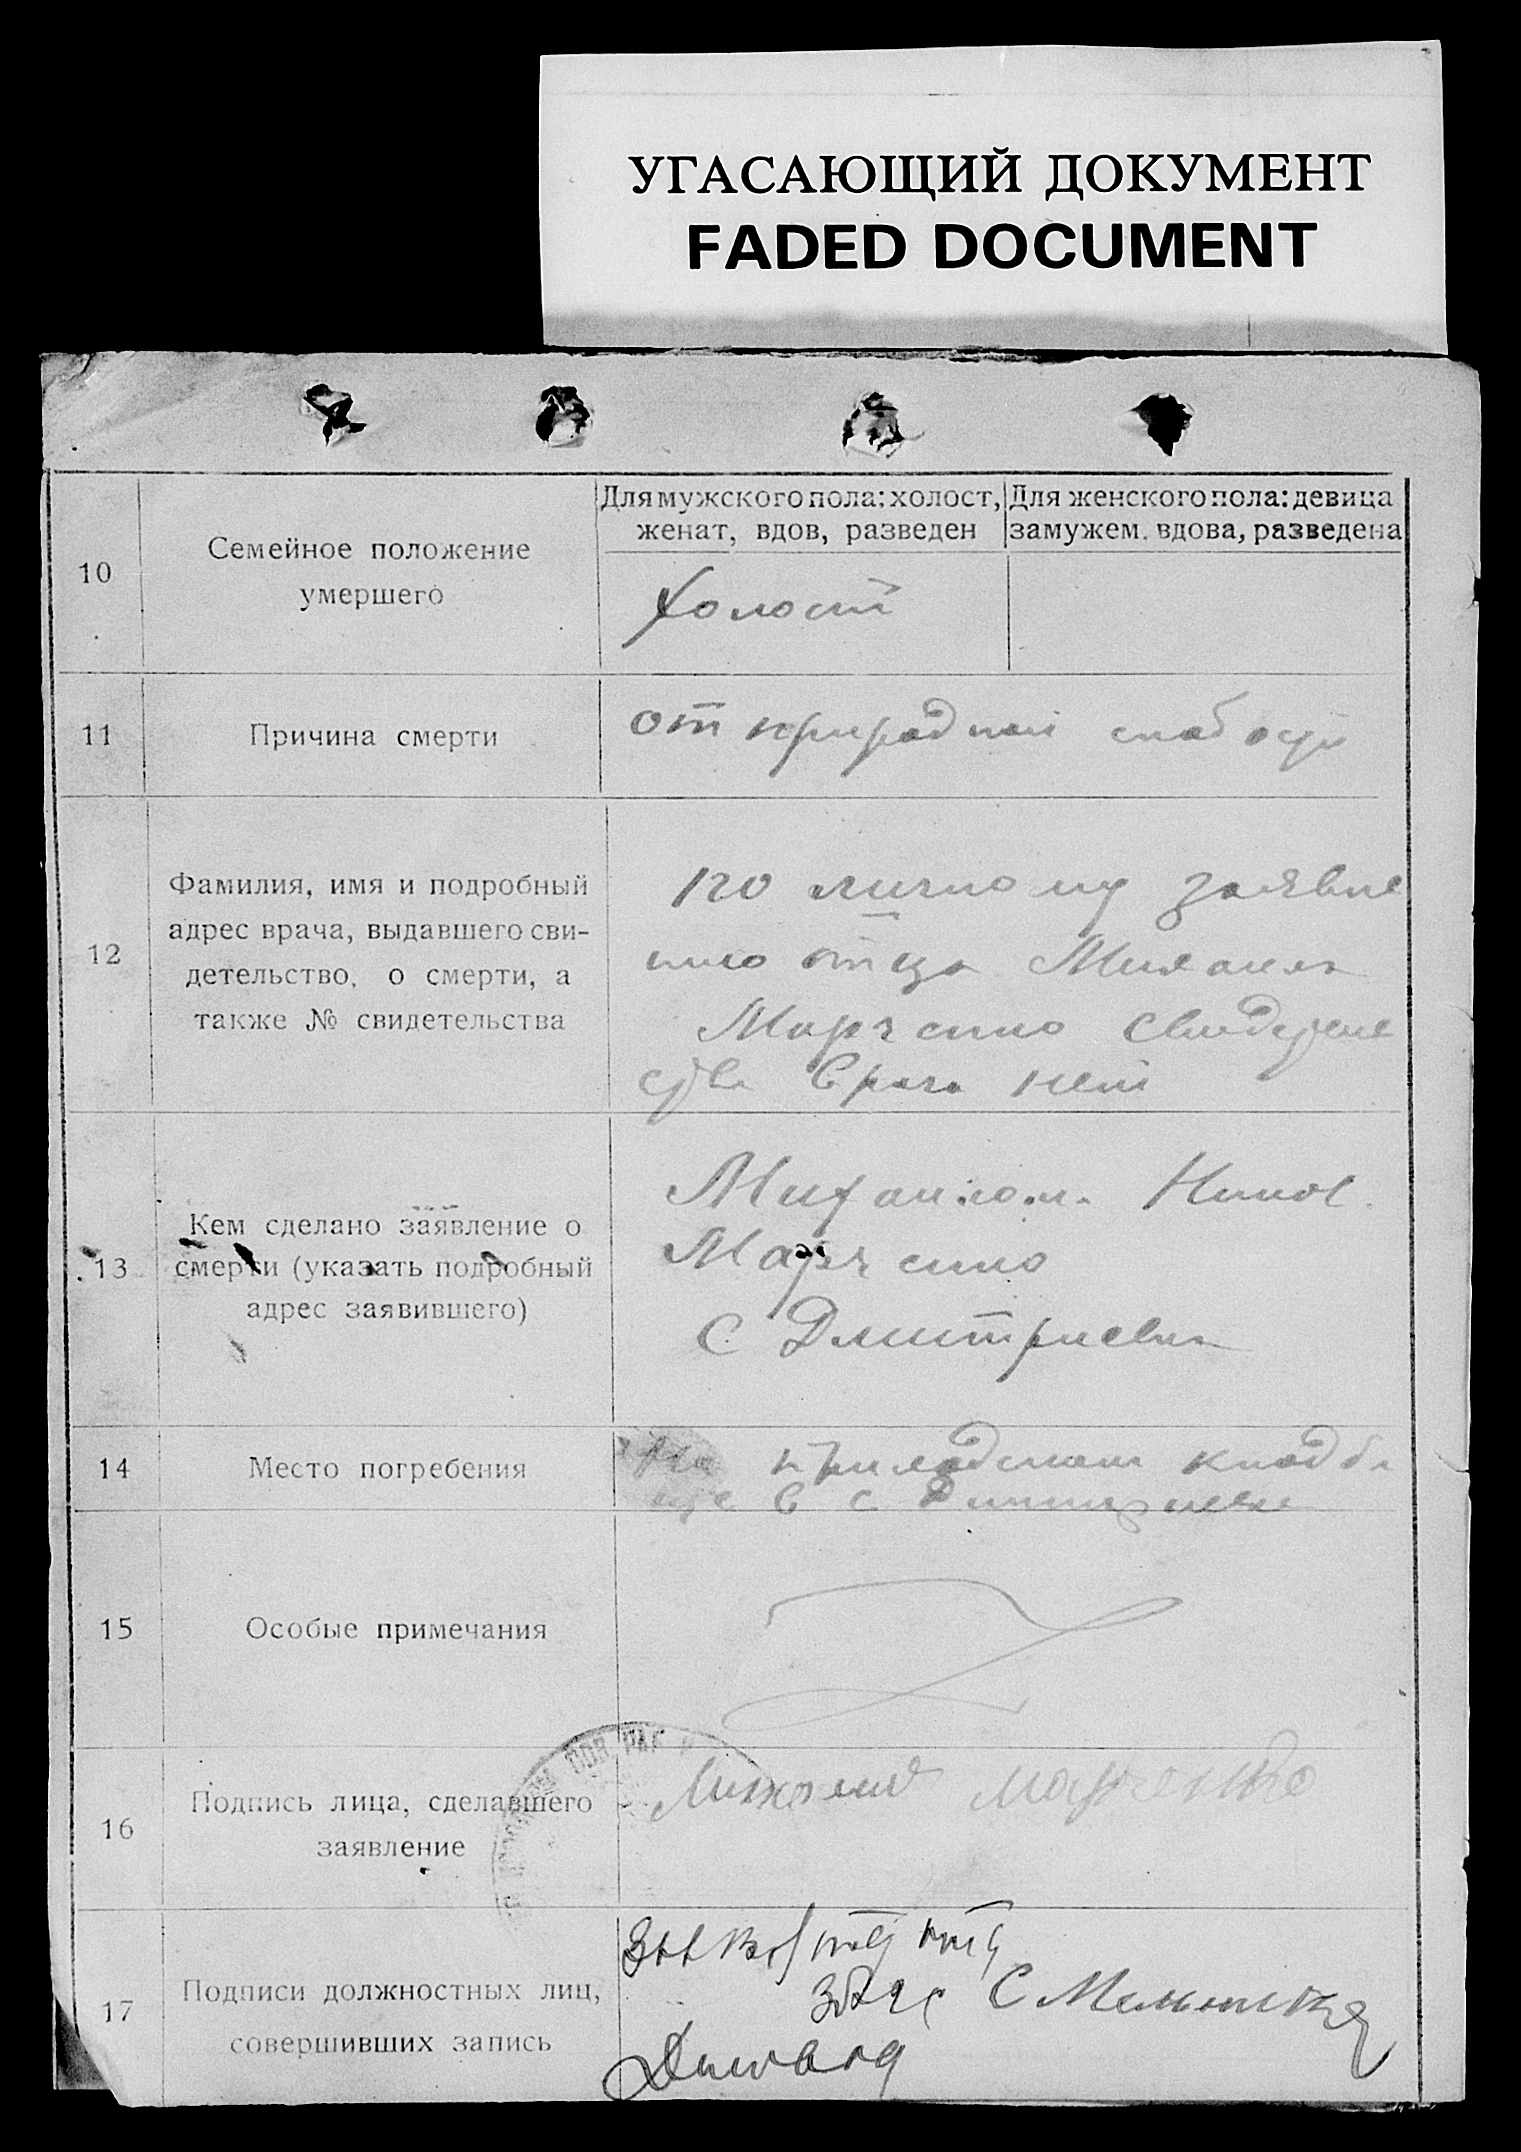 УГАСАЮЩИЙ ДОКУМЕНТ
FADED DOCUMENT
10
Семейное положение
умершего
Для мужского пола: холост,
женат, вдов, разведен
Для женского пола: девица
замужем, вдова, разведена
Холост
11
Причина смерти
от природной слабости
12
Фамилия, имя и подробный
адрес врача, выдавшего сви-
детельство, о смерти, а
также № свидетельства
по личному заявле
нию отца Михаила
Марченко Свидетель
ства врача нет
13
Кем сделано заявление о
смерти (указать подробный
адрес заявившего)
Михаилом
Марченко
С Дмитриевка
14
Место погребения
На кладби
ще в с Дмитриевке
15
Особые примечания
16
Подпись лица, сделавшего
заявление
Михаил Марченко
17
Подписи должностных лиц,
совершивших запись
С